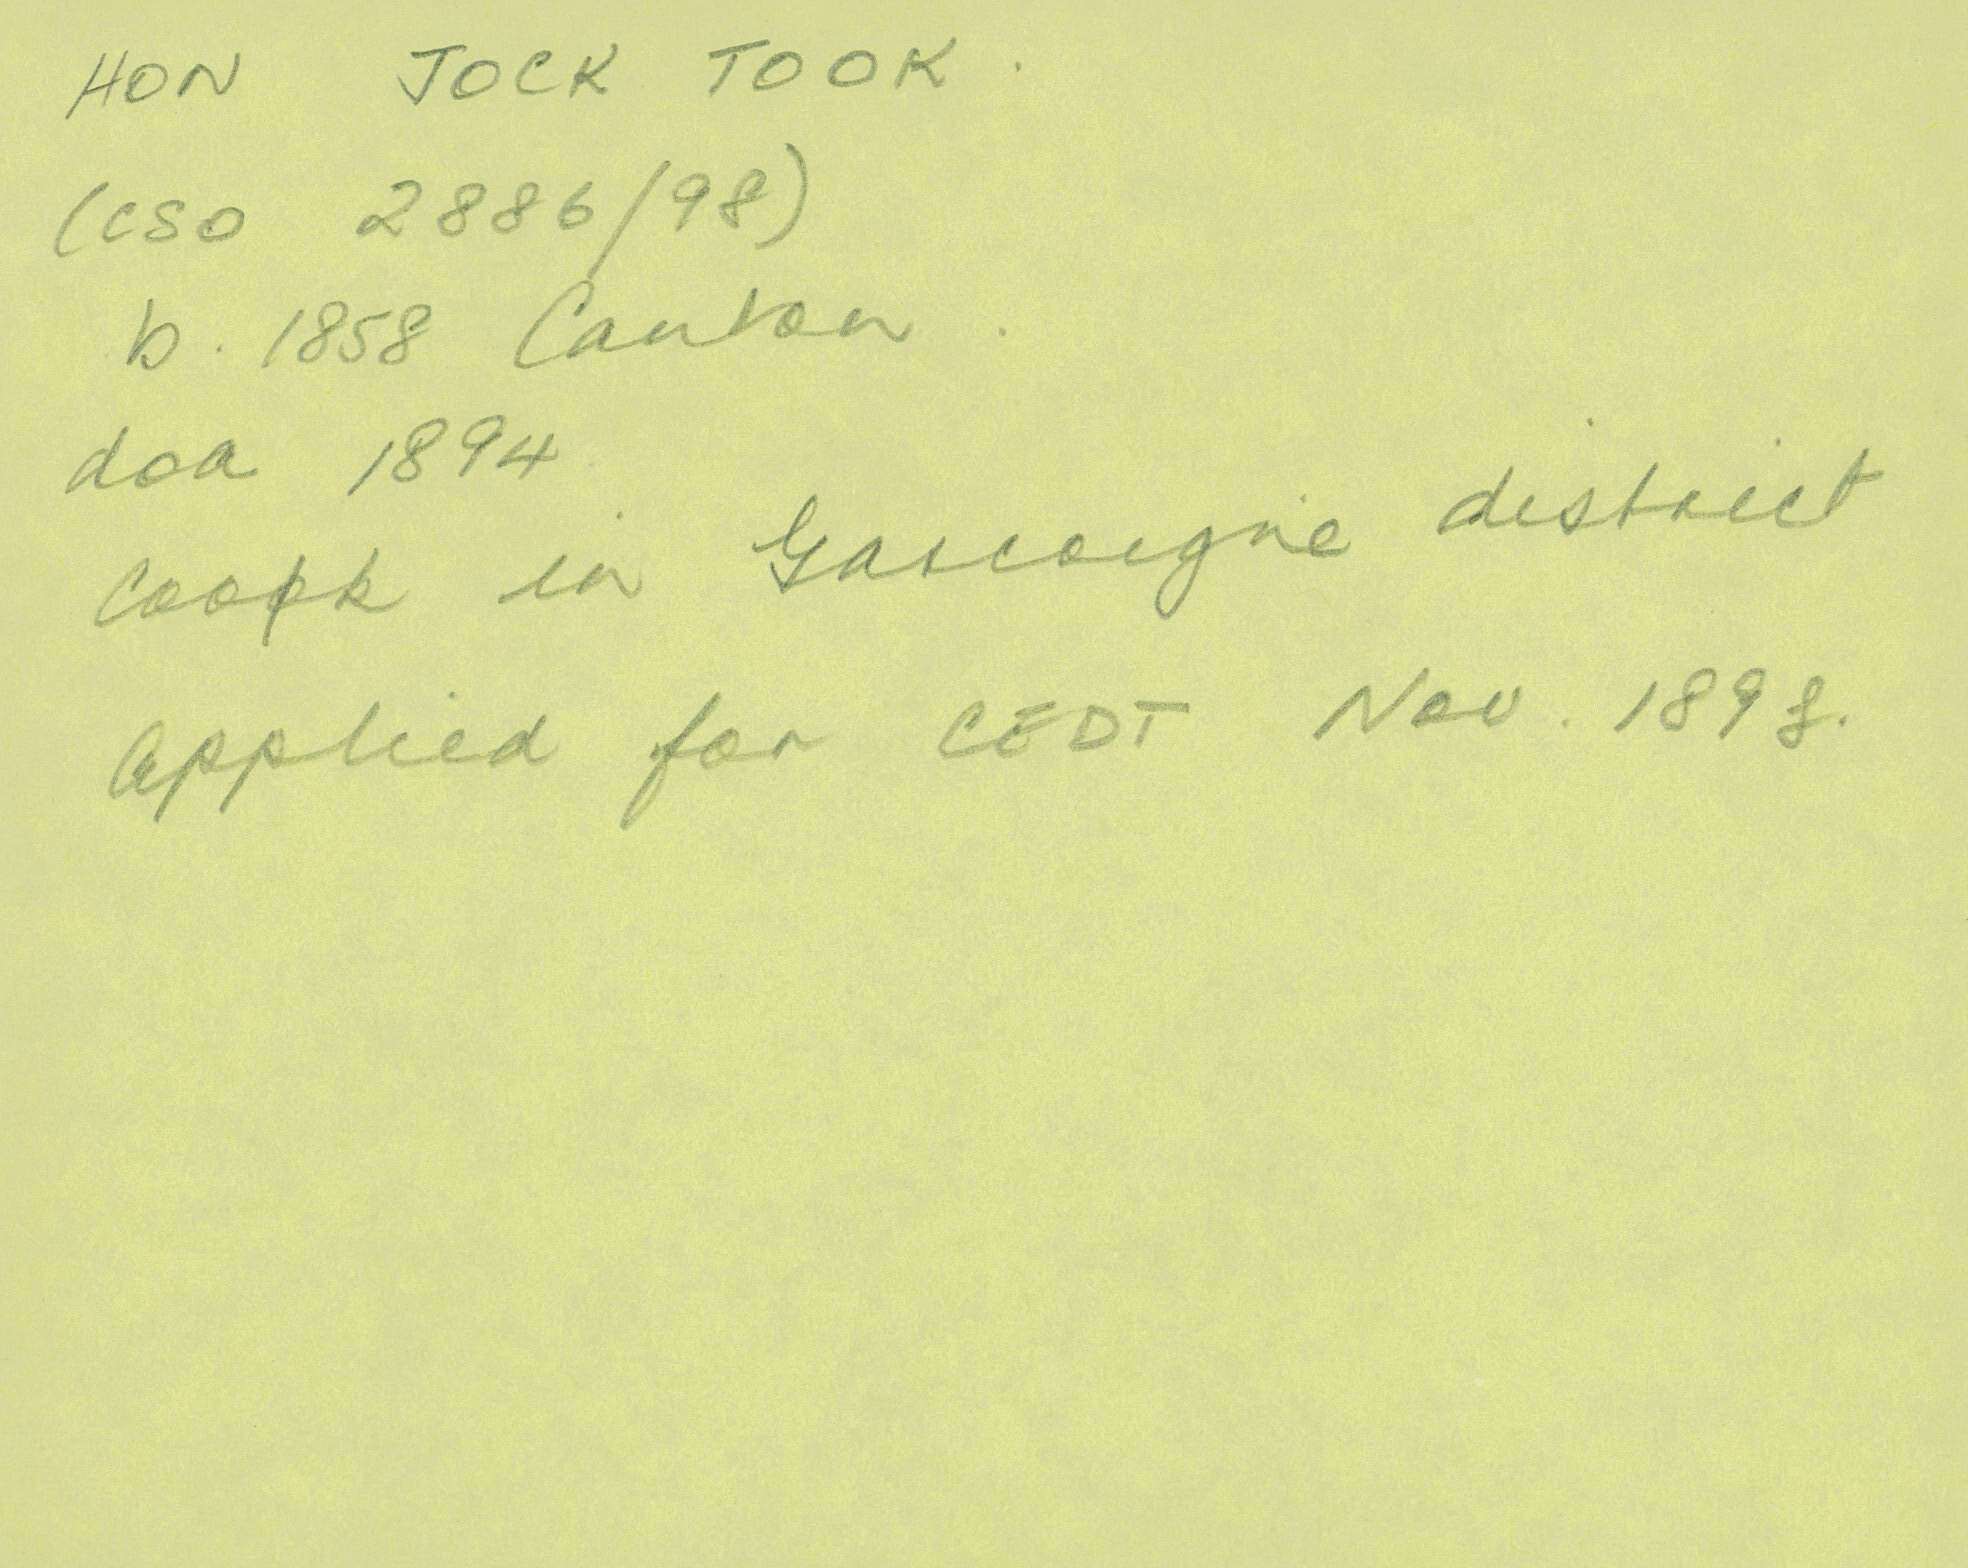 HON JOCK TOOK.
(CSO 2886/98)
b. 1858 Canton.
doa 1894
Cook in Gascoigne district
Applied for CEDT Nov. 1898.